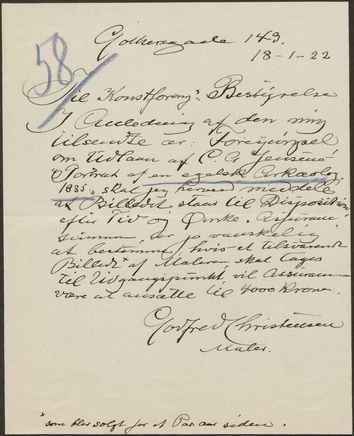 58
Gothersgade 143.
18-1-22
Til Kunstforeng's Bestyrelse
I Anledning af den mig
tilsendte ær. Forespørgsel
om Udlaan af C A Jensens
Portræt af en engelsk Arkæolog
1835, skal jeg herved meddele
at Billedet staar til Disposition
efter Tid og Ønske. Assurance
summen er jo vanskelig
at bestemme, hvis et tilsvarende
Billede* af Maleren skal tages
til Udgangspunkt vil Assuran-
være at ansætte til 4000 Kroner.
Godfred Christensen
Maler.
*som blev solgt for et Par aar siden.